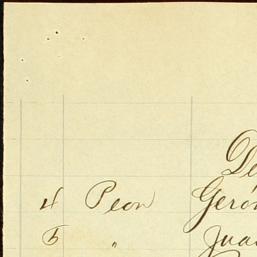 De
4 Peon Gerón
5 " Jua